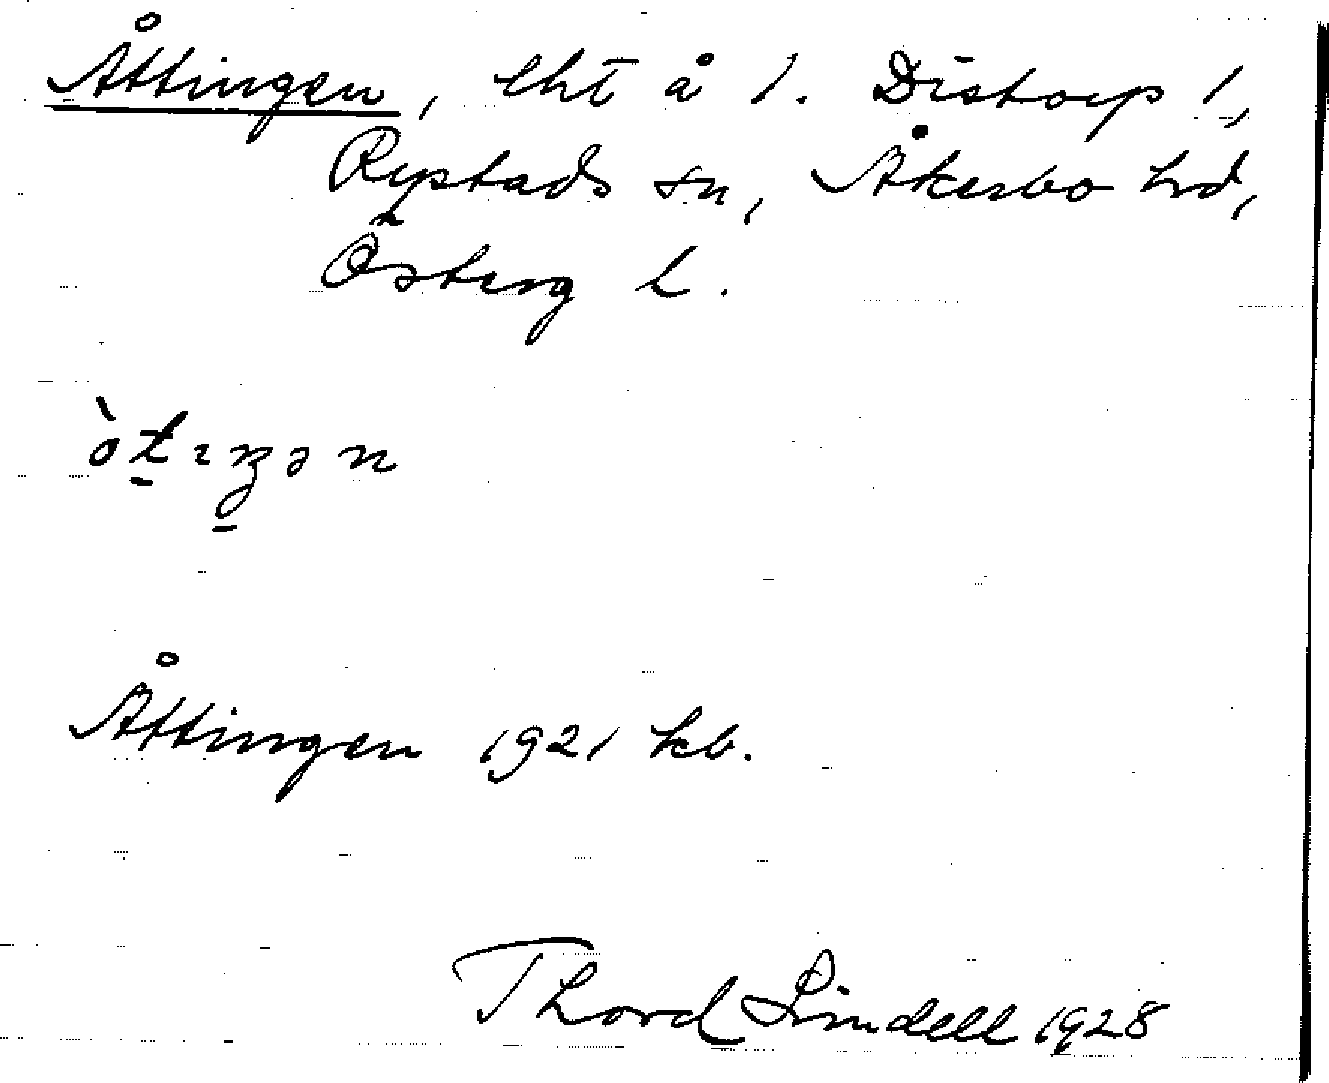 Åttingen, lht å 1. Distorp 1,
Rystads sn, Åkerbo hd,
Österg L.
òt̠ɪŋ̠ən
Åttingen 1921 kb.
Thord Lindell 1928